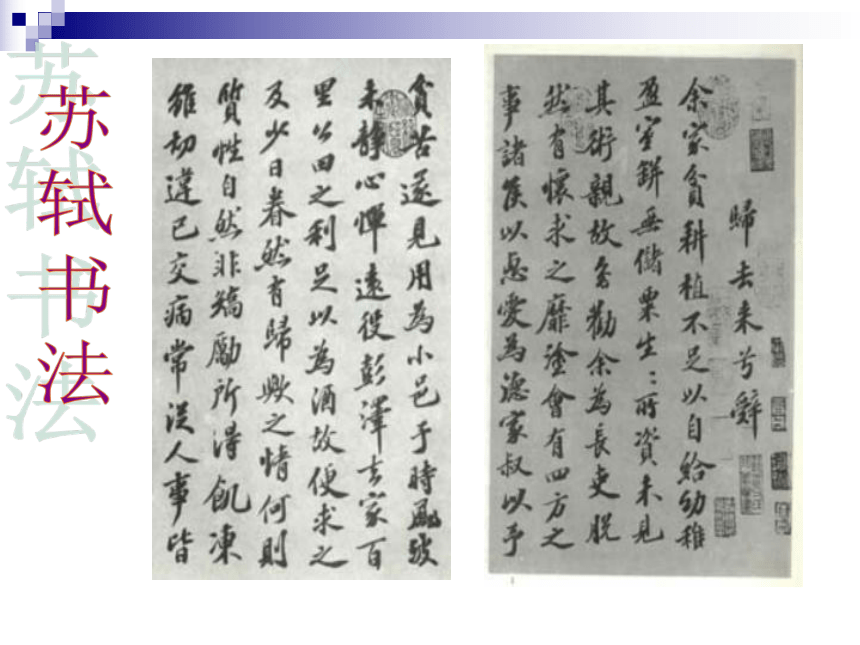 苏轼书法
歸去来兮辭
余家貧耕植不足以自給幼稚
盈室缾無儲粟生〻所資未見
其術親故多勸余為長吏脫
然有懷求之靡塗會有四方之
事諸侯以惠愛為德家叔以予
貧苦遂見用為小邑于時風波
未靜心憚遠役彭澤去家百
里公田之利足以為酒故便求之
及少日眷然有歸歟之情何則
質性自然非矯勵所得飢凍
雖切違已交病常從人事皆